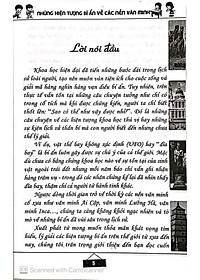 NHỮNG HIỆN TƯỢNG BÍ ẨN VỀ CÁC NỀN VĂN MINH
Lời nói đầu
Khoa học hiện đại đã tiến những bước dài trong lịch
sử loài người, tạo nên muôn vàn tiện ích cho cuộc sống và
giải mã hàng nghìn hàng vạn điều bí ẩn. Tuy nhiên, trên
thực tế vẫn tồn tại những câu chuyện tưởng như chỉ có
trong cổ tích mà được chứng kiến, người ta chỉ biết
thốt lên: "Sao có thể như vậy được nhỉ?". Đó là những
câu chuyện về các hiện tượng thần bí, kỳ thú hay những
sự kiện lịch sử thần bí mà con người biết đến nhưng chưa
thể lý giải.
Ví dụ, vật thể bay không xác định (UFO) hay "đĩa
bay" là bí ẩn luôn gây được sự chú ý của cả thế giới. Mặc
dù chưa có bằng chứng khoa học nào về sự tồn tại của sinh
vật ngoài trái đất nhưng mỗi năm báo chí vẫn ghi nhận
hàng trăm vụ - trong đó các nhân chứng kể lại đã nhìn thấy
đĩa bay, thậm chí cả người từ hành tinh khác.
Ngược dòng thời gian trở về thời kỳ các nền văn minh
cổ xưa như văn minh Ai Cập, văn minh Lưỡng Hà, văn
minh Inca,... chúng ta cũng không khỏi ngạc nhiên và tò
mò về những bí ẩn đã vùi sâu trong lịch sử.
Xuất phát từ mong muốn thỏa mãn khát vọng tìm
hiểu, lý giải các hiện tượng bí ẩn trên thế giới từ xưa đến
nay, chúng tôi trân trọng giới thiệu đến bạn đọc cuốn
5
Scanned with CamScanner